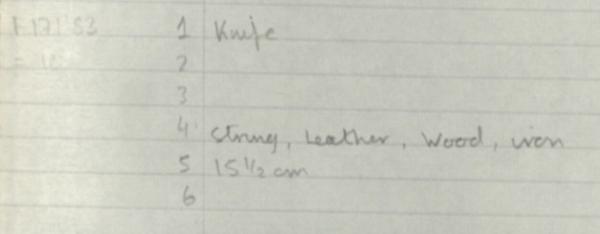 1 Knife
2
3
4 String, Leather, Wood, iron
5 15 1/2 cm
6